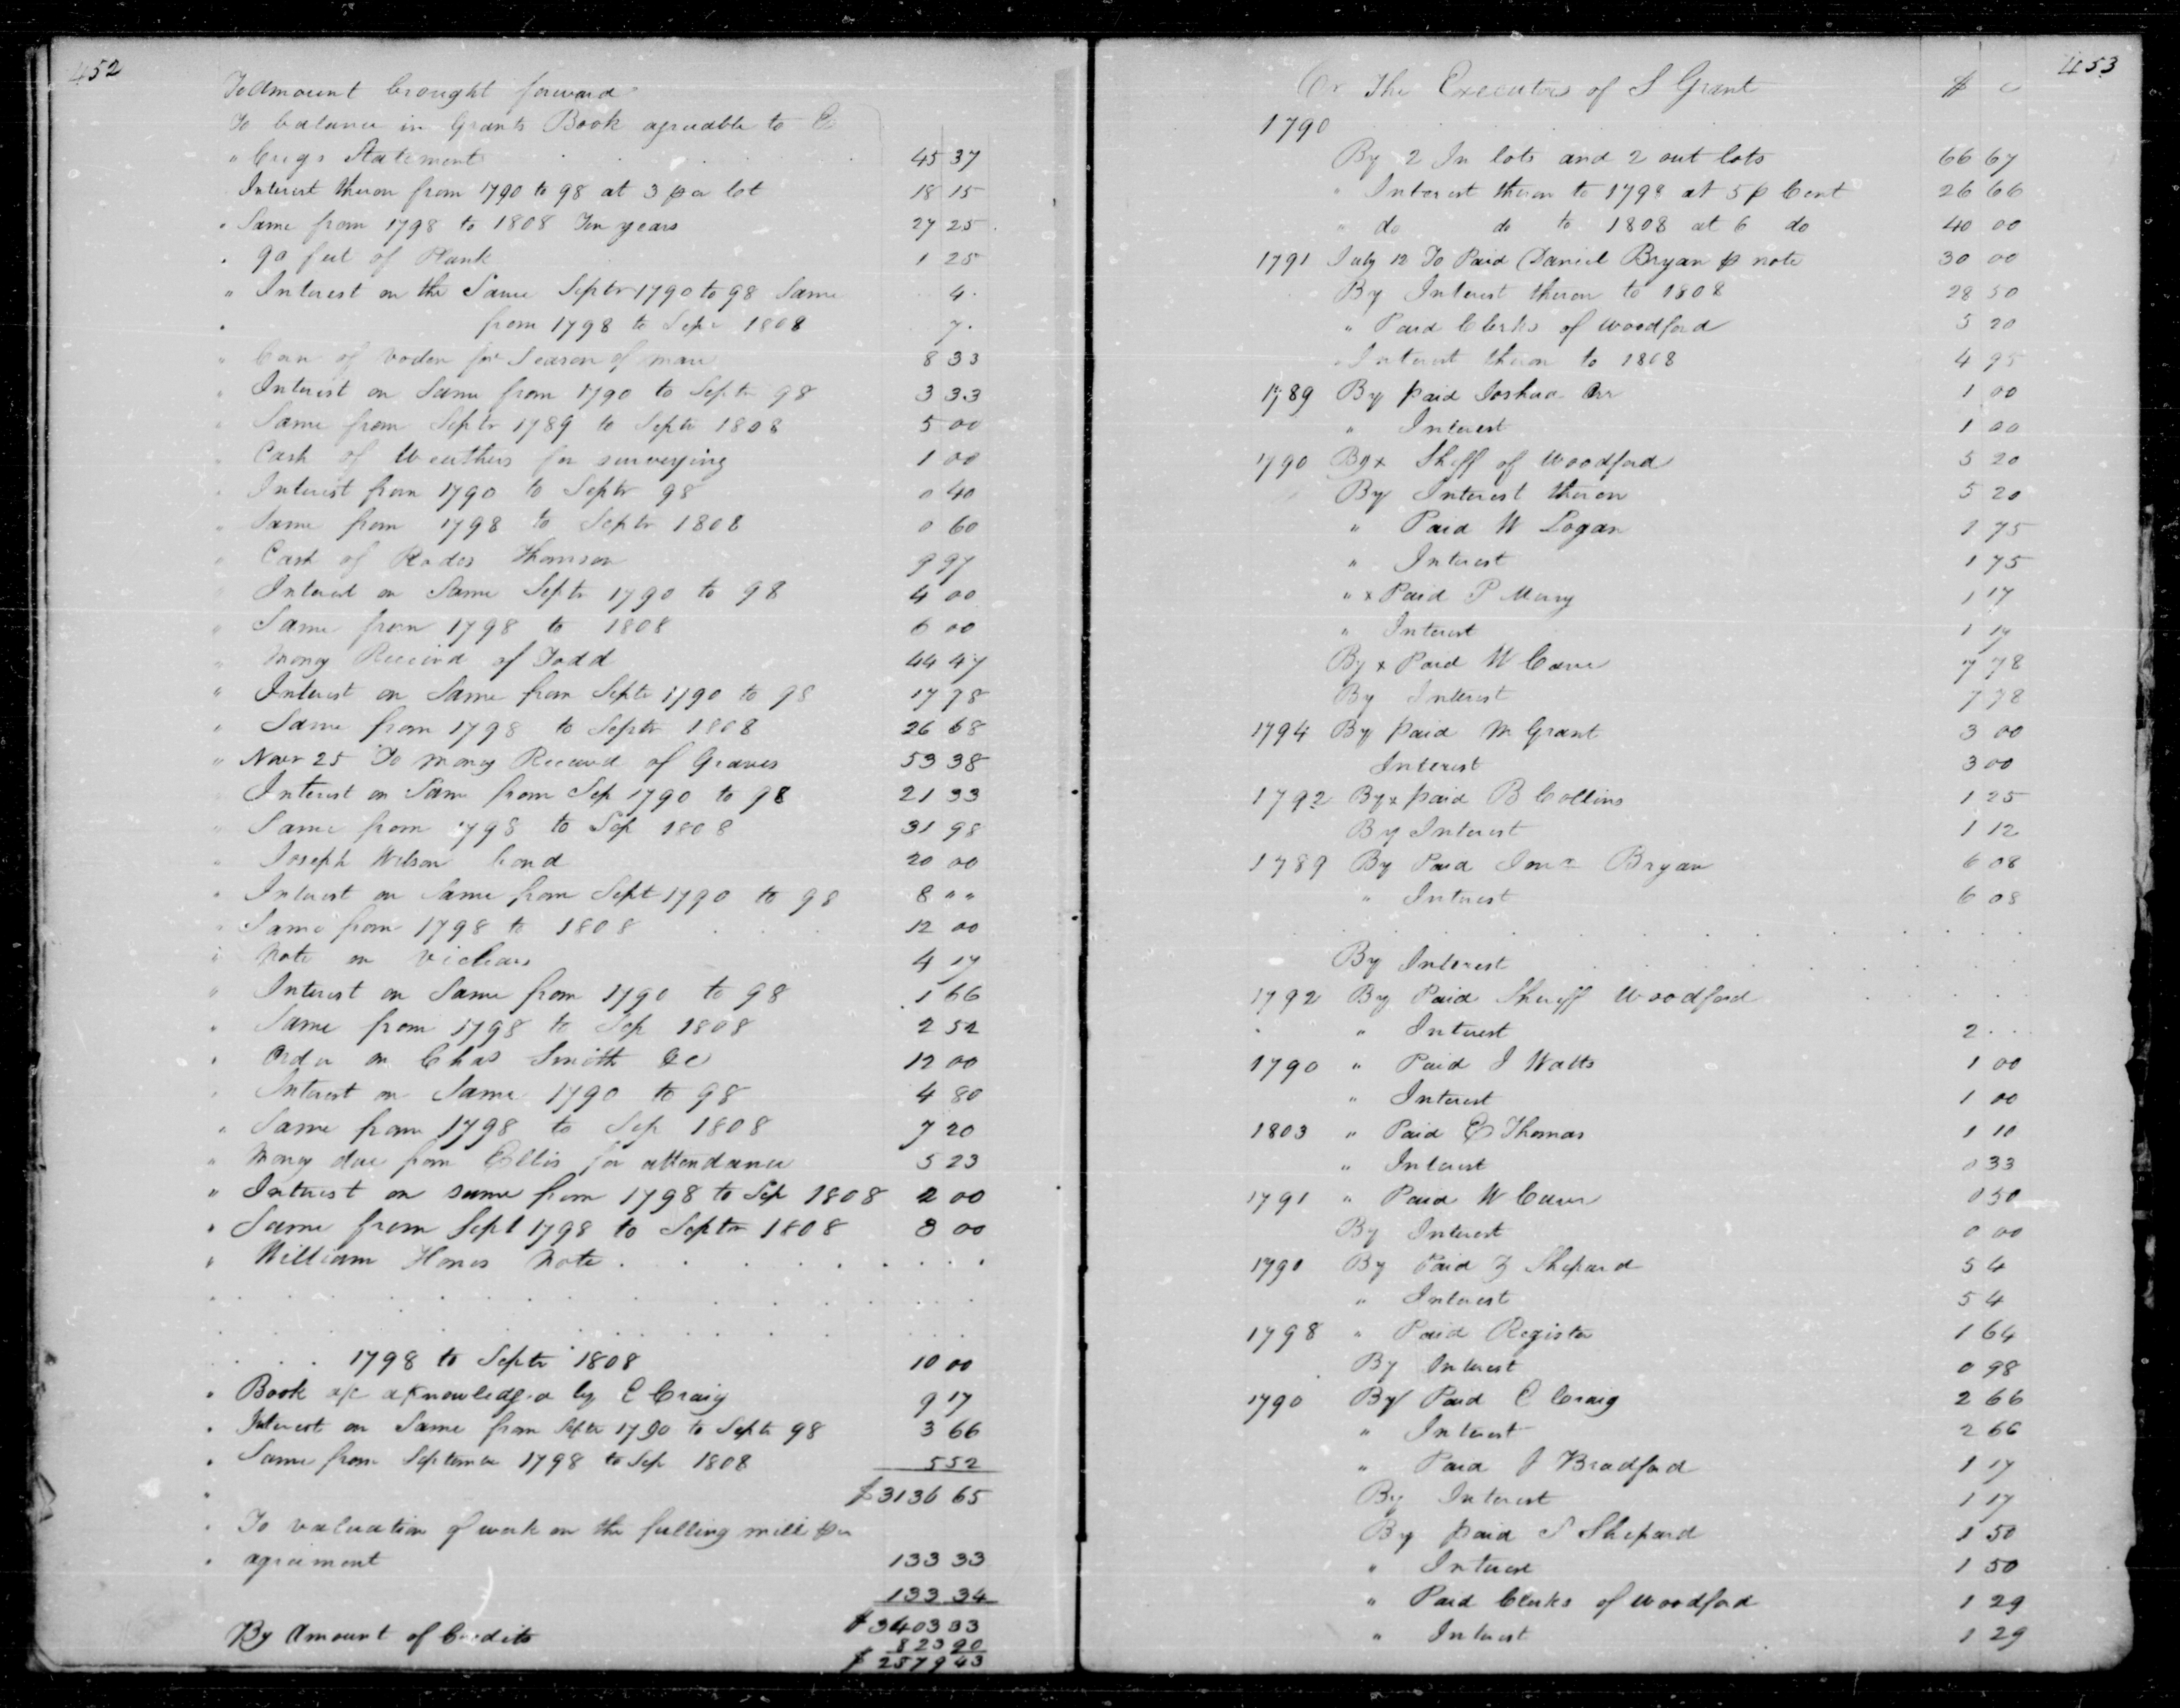 452
To Amount brought forward
To balance in Grants Book agreeable to E
" Craigs Statement 45 37
Interest theron from 1790 to 98 at 3 p a lot 18 15
" Same from 1798 to 1808 Ten years 27 25
" 90 feet of Plank 1 25
" Interest on the Same Septr 1790 to 98 Same 4
" from 1798 to Sepr 1808 7
" of for Season of mare 8 33
" Interest on Same from 1790 to Septr 98 3 33
" Same from Septr 1789 to Septr 1808 5 00
" Cash of Weathers for surveying 1 00
" Interest from 1790 to Septr 98 0 40
" Same from 1798 to Septr 1808 0 60
" Cash of Rodes Thomson 9 97
" Interest on Same Septr 1790 to 98 4 00
" Same from 1798 to 1808 6 00
" Money Received of Todd 44 47
" Interest on Same from Septr 1790 to 98 17 78
" Same from 1798 to Septr 1808 26 68
" Novr 25 To Money Received of Graves 53 38
Interest on Same from Sep 1790 to 98 21 33
" Same from 1798 to Sep 1808 31 98
" Joseph Wilson bond 20 00
" Interest on Same from Sept 1790 to 98 8 " "
" Same from 1798 to 1808 12 00
" Note on 4 17
" Interest on Same from 1790 to 98 1 66
" Same from 1798 to Sep 1808 2 52
" Order on Chas Smith &c 12 00
" Interest on Same 1790 to 98 4 80
" Same from 1798 to Sep 1808 7 20
" Money due from Ellis for attendance 5 23
" Interest on same from 1798 to Sep 1808 2 00
" Same from Sept 1798 to Septr 1808 3 00
" William Note
1798 to Septr 1808 10 00
" Book a/c acknowledged by E Craig 9 17
" Interest on Same from Septr 1790 to Septr 98 3 66
" Same from September 1798 to Sep 1808 5 52
" $3136 65
" To valuation of work on the fulling mill per
" agreement 133 33
133 34
$3403 33
By Amount of Credits 823 90
$2579 43
453
Cr The Executors of S Grant $ c
1790
By 2 In lots and 2 out lots 66 67
" Interest theron to 1798 at 5 p Cent 26 66
" do do to 1808 at 6 do 40 00
1791 July 12 To Paid Daniel Bryan p note 30 00
By Interest theron to 1808 28 50
" Paid Clerks of Woodford 5 20
" Interest theron to 1808 4 95
1789 By paid Joshua Orr 1 00
" Interest 1 00
1790 By x Sheff of Woodford 5 20
By Interest theron 5 20
" Paid W Logan 1 75
" Interest 1 75
" x Paid P 1 17
" Interest 1 17
By x Paid W Cave 7 78
By Interest 7 78
1794 By paid M Grant 3 00
Interest 3 00
1792 By x paid B Collins 1 25
By Interest 1 12
1789 By Paid Bryan 6 08
" Interest 6 08
By Interest
1792 By Paid Sheriff Woodford
" " Interest 2
1790 " Paid J Watts 1 00
" Interest 1 00
1803 " Paid E Thomas 1 10
" Interest 0 33
1791 " Paid W Caver 0 50
By Interest 0 00
1790 By Paid Shepard 5 4
" Interest 5 4
1798 " Paid Register 1 64
By Interest 0 98
1790 By Paid E Craig 2 66
" Interest 2 66
" Paid J Bradford 1 17
By Interest 1 17
By paid S Shepard 1 50
" Interest 1 50
" Paid Clerks of Woodford 1 29
" Interest 1 29